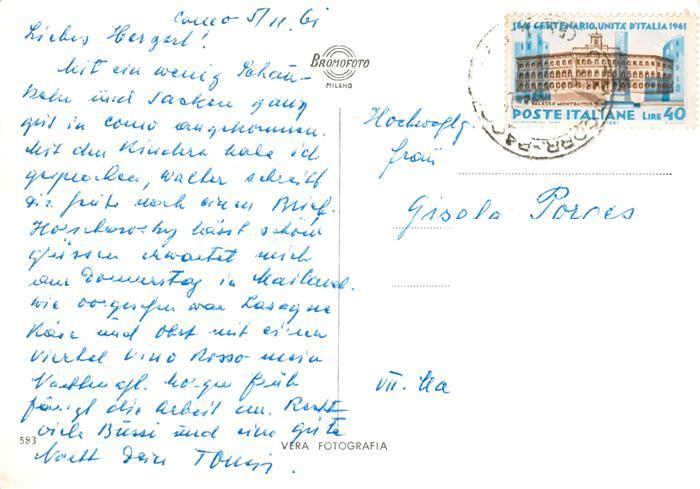 Como 5/11.61
Liebes Herzerl!
Mit ein wenig Schau-
keln und Sacken ganz
gut in Como angekommen.
Mit den Kindern habe ich
gesprochen, Walter schreibt
Dir heute noch einen Brief.
Horschowsky lässt schön
grüssen erwartet mich
am Donnerstag in Mailand.
wie vorgesehen war Lasagne
Käse und Obst mit einem
Viertel Vino Rosso mein
Nachtmahl. Morgen früh
fängt die Arbeit an. Recht
viele Bussi und eine gute
Nacht Dein
BROMOFOTO
MILANO
1861 CENTENARIO UNITÀ D'ITALIA 1961
PALAZZO MONTECITORIO
POSTE ITALIANE LIRE 40
Frau
Gisela Porges
583
VERA FOTOGRAFIA